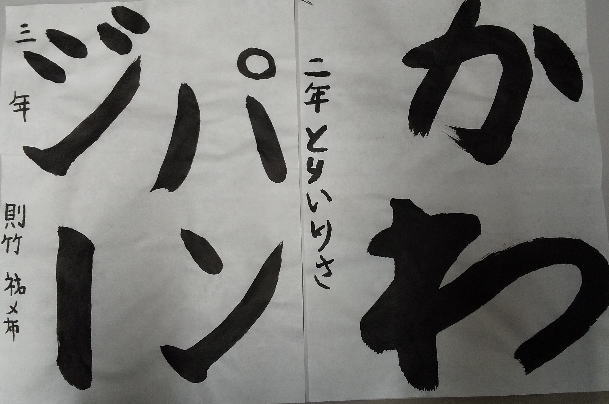 かわ
二年 とりいりさ
パン
ジー
三年 則竹 祐希